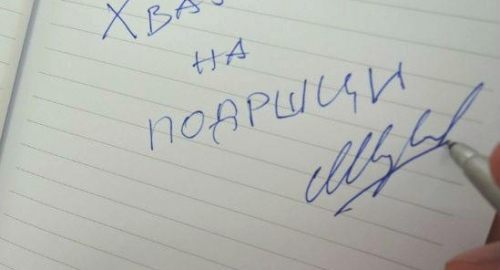 ХВА
НА
ПОДРШЦИ